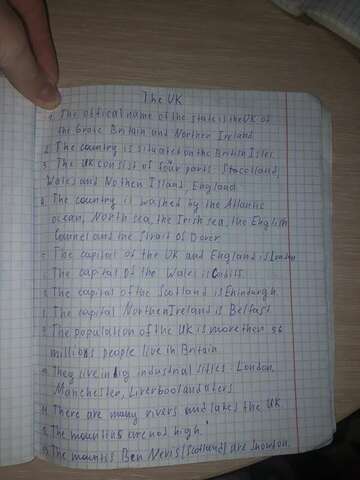 The UK
1. The offical name of the state is the UK of
the Grate Britain and Northen Ireland
2. The country is situated on the British Isles
3. The UK consist of four parts: Stocolland,
Wales and Nothen Island, England
4. The country is washed by the Atlantic
ocean, North sea, the Irish sea, the English
Counel and the Strait of Dover
The capital of the UK and England is London
The capital of the Wales is
The capital of the Scotland is Eninburgh
The capital Northen Ireland is Belfast
The population of the UK is more then 56
millions people live in Britain
They live in big industrial sities London,
Manchester, Liverbool and
There are many rivers and lakes the UK
The mountins are not high
The mountis Ben Nevis (Scotland) are